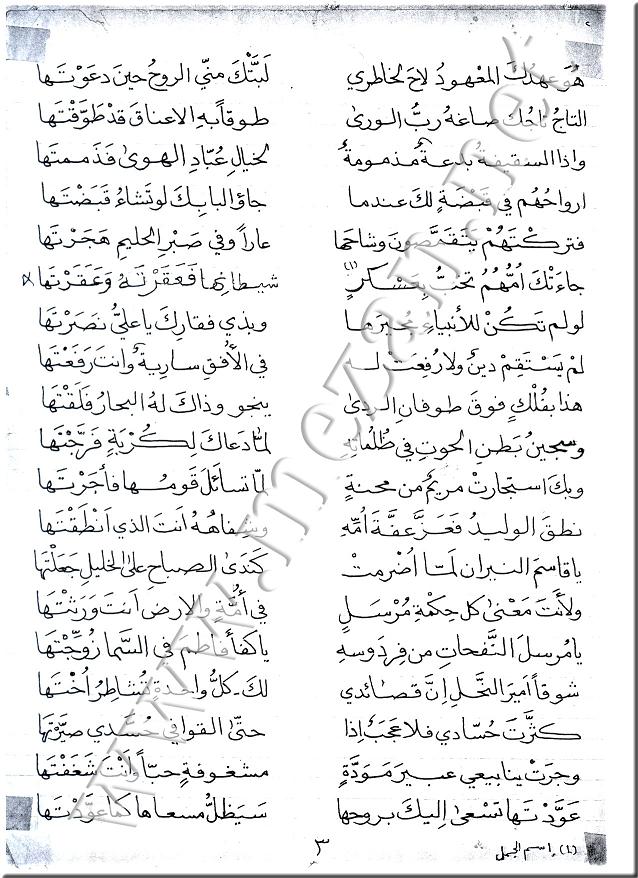 هُوَ عهدُكَ المعْهودُ لاحَ لخاطري لَبَّتْكَ منّي الروحُ حينَ دعَوْتَها
التاجُ تاجُكَ صاغهُ ربُّ الورىٰ طوقاً به الاعناقَ قدْ طَوَّقْتَها
واذا السقيفةُ بدعةٌ مذمومةٌ لخيالِ عُبّادِ الهوىٰ فذممتَها
ارواحُهُم في قبْضَةٍ لكَ عندما جاؤا لبابِكَ لو تَشاءُ قبَضْتَها
فتركْتَهُمْ يتَقمَّصونَ وشاحَها عاراً وفي صَبْرِ الحليمِ هَجَرْتَها
جاءَتْكَ أُمُّهُمُ تخُبُّ بِعَسْكرٍ (١) شيطانِها فَعَقَرْتَهُ وَعَقَرْتَها
لو لم تكُنْ للأنبياءِ مُجيرَها وبذي فقارِكَ يا عليُّ نصَرْتَها
لمْ يَسْتَقِمْ دينٌ ولا رُفِعَتْ لهُ في الأُفقِ ساريةٌ وانتَ رفَعْتَها
هذا بفُلْكٍ فوقَ طوفانِ الردىٰ ينجو وذاكَ لهُ البحارُ فلَقْتَها
وسجينُ بَطنِ الحوتِ في ظلُماتِهِ لمّا دعاكَ لِكُرْبَةٍ فرَّجْتَها
وبكَ استجارتْ مريمٌ من محنةٍ لمّا تسائَلَ قومُها فأجَرْتَها
نطقَ الوليدُ فعَزَّ عفَّةَ أُمِّهِ وشفاهُهُ انتَ الذي انْطَقْتَها
يا قاسمَ النيران لمّا أُضْرمتْ كنَدىٰ الصباحِ علىٰ الخليلِ جعَلْتَها
ولأنتَ مَعْنىٰ كل حِكْمةِ مُرْسَلٍ في أُمَّةٍ والارض انتَ وَرَثْتَها
يا مُرسلَ النَّفحاتِ من فِردَوسهِ يا كفأَ فاطمَ في السَّما زُوِّجْتَها
شوقاً أميرَ النَّحلِ إنَّ قصائدي لكَ كلُّ واحدةٍ تُشاطِرُ أُخْتَها
كثُرَتْ حُسّادي فلا عَجَبٌ إذا حتّىٰ القوافي حُسَّدي صيَّرْتَها
وجرَتْ ينابيعي عبيرَ مَوَدَّةٍ مشغوفةٍ حبّاً وأنْتَ شغَفْتَها
عَوَّدْتَها تَسْعىٰ إليكَ بروحِها سَيَظلُّ مسعاها كما عوَّدْتَها
(١) اسم الجمل
٣
www.mezan.net